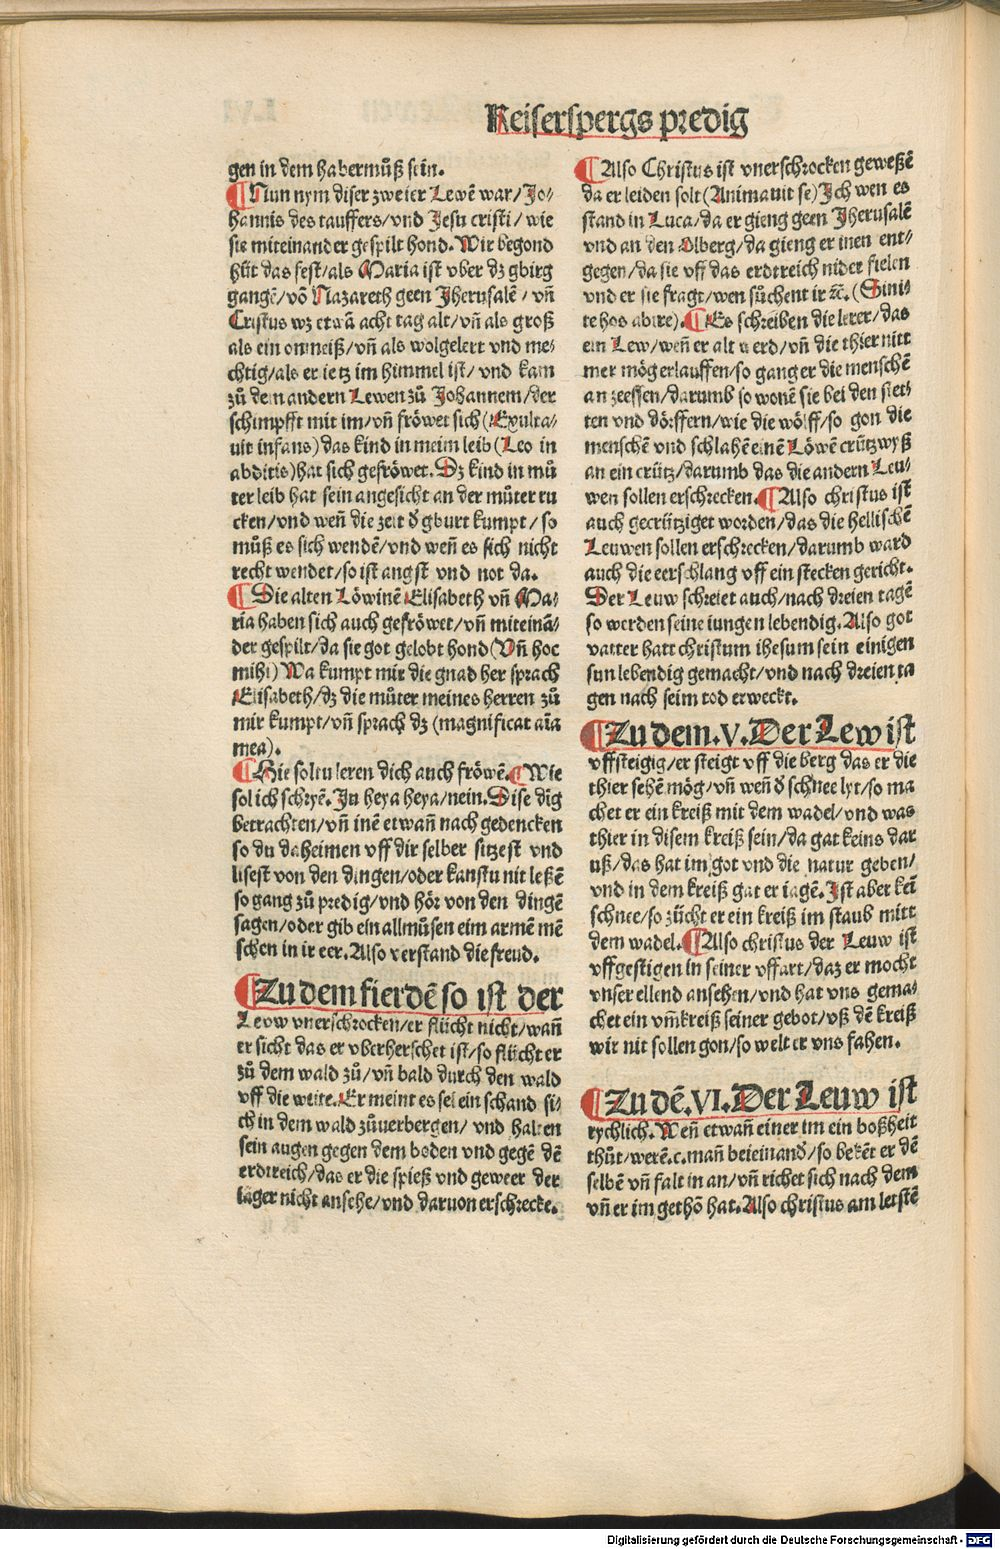 Keiserspergs predig
gen in dem habermůß sein.
¶ Nun nym diser zweier Lewē war/ Jo⸗
hannis des tauffers/ vnd Jesu cristi/ wie
sie miteinander gespilt hond. Wir begond
hüt das fest/ als Maria ist vber dz gbirg
gangē/ vō Nazareth geen Jherusalē/ vñ
Cristus wz etwā acht tag alt/ vñ als groß
als ein onmeiß/ vñ als wolgelert vnd me⸗
chtig/ als er ietz im himmel ist/ vnd kam
zů dem andern Lewen zů Johannem/ der
schimpfft mit im/ vñ fröwet sich (Exulta⸗
uit infans) das kind in meim leib (Leo in
abditis) hat sich gefröwet. Dz kind in mů
ter leib hat sein angesicht an der můter ru
cken/ vnd weñ die zeit d̕ gburt kumpt/ so
můß es sich wendē/ vnd weñ es sich nicht
recht wendet/ so ist angst vnd not da.
¶ Die alten Löwinē Elisabeth vñ Ma⸗
ria haben sich auch gefröwet/ vñ miteinā⸗
der gespilt/ da sie got gelobt hond (Vñ hoc
mihi) Wa kumpt mir die gnad her sprach
Elisabeth/ dz die můter meines herren zů
mir kumpt/ vñ sprach dz (magnificat aīa
mea).
¶ Hie soltu leren dich auch fröwē. ¶ Wie
sol ich schryē. Ju heya heya/ nein. Dise dīg
betrachten/ vñ inē etwañ nach gedencken
so du daheimen vff dir selber sitzest vnd
lisest von den dingen/ oder kanstu nit leßē
so gang zů predig/ vnd hör von den dingē
sagen/ oder gib ein allmůsen eim armē mē
schen in ir eer. Also verstand die freud.
¶ Zu dem fierdē so ist der
Leow vnerschrocken/ er flücht nicht/ wañ
er sicht das er vberherschet ist/ so flücht er
zů dem wald zů/ vñ bald durch den wald
vff die weite. Er meint es sei ein schand si⸗
ch in dem wald zůuerbergen/ vnd halten
sein augen gegen dem boden vnd gegē dē
erdtreich/ das er die spieß vnd geweer der
iäger nicht ansehe/ vnd daruon erschrecke.
¶ Also Christus ist vnerschrocken geweßē
da er leiden solt (Animauit se) Jch wen es
stand in Luca/ da er gieng geen Jherusalē
vnd an den Olberg/ da gieng er inen ent⸗
gegen/ da sie vff das erdtreich nider fielen
vnd er sie fragt/ wen sůchent ir ꝛc. (Sini⸗
te hos abire). ¶ Es schreiben die lerer/ das
ein Lew/ weñ er alt werd/ vñ die thier nitt
mer mög erlauffen/ so gang er die menschē
an zeessen/ darumb so wonē sie bei den stet⸗
ten vnd dörffern/ wie die wölff/ so gon die
menschē vnd schlahē einē Löwē crützwyß
an ein crütz/ darumb das die andern Leu⸗
wen sollen erschrecken. ¶ Also christus ist
auch gecrütziget worden/ das die hellischē
Leuwen sollen erschrecken/ darumb ward
auch die eerschlang vff ein stecken gericht.
Der Leuw schreiet auch/ nach dreien tagē
so werden seine iungen lebendig. Also got
vatter hatt christum ihesum sein einigen
sun lebendig gemacht/ vnd nach dreien ta
gen nach seim tod erweckt.
¶ Zu dem. V. Der Lew ist
vffsteigig/ er steigt vff die berg das er die
thier sehē mög/ vñ weñ d̕ schnee lyt/ so ma
chet er ein kreiß mit dem wadel/ vnd was
thier in disem kreiß sein/ da gat keins dar
uß/ das hat im got vnd die natur geben/
vnd in dem kreiß gat er iagē. Jst aber kei
schnee/ so zücht er ein kreiß im staub mitt
dem wadel. ¶ Also christus der Leuw ist
vffgestigen in seiner vffart/ daz er mocht
vnser ellend ansehen/ vnd hat vns gema⸗
chet ein vm̄kreiß seiner gebot/ vß dē kreiß
wir nit sollen gon/ so welt er vns fahen.
¶ Zu dē. VI. Der Leuw ist
rychlich. Weñ etwañ einer im ein boßheit
thůt/ werē .c. mañ beieinand̕/ so bekēt er dē
selbē vñ falt in an/ vñ richet sich nach dem
vñ er im gethō hat. Also christus am letstē
Digitalisierung gefördert durch die Deutsche Forschungsgemeinschaft - DFG